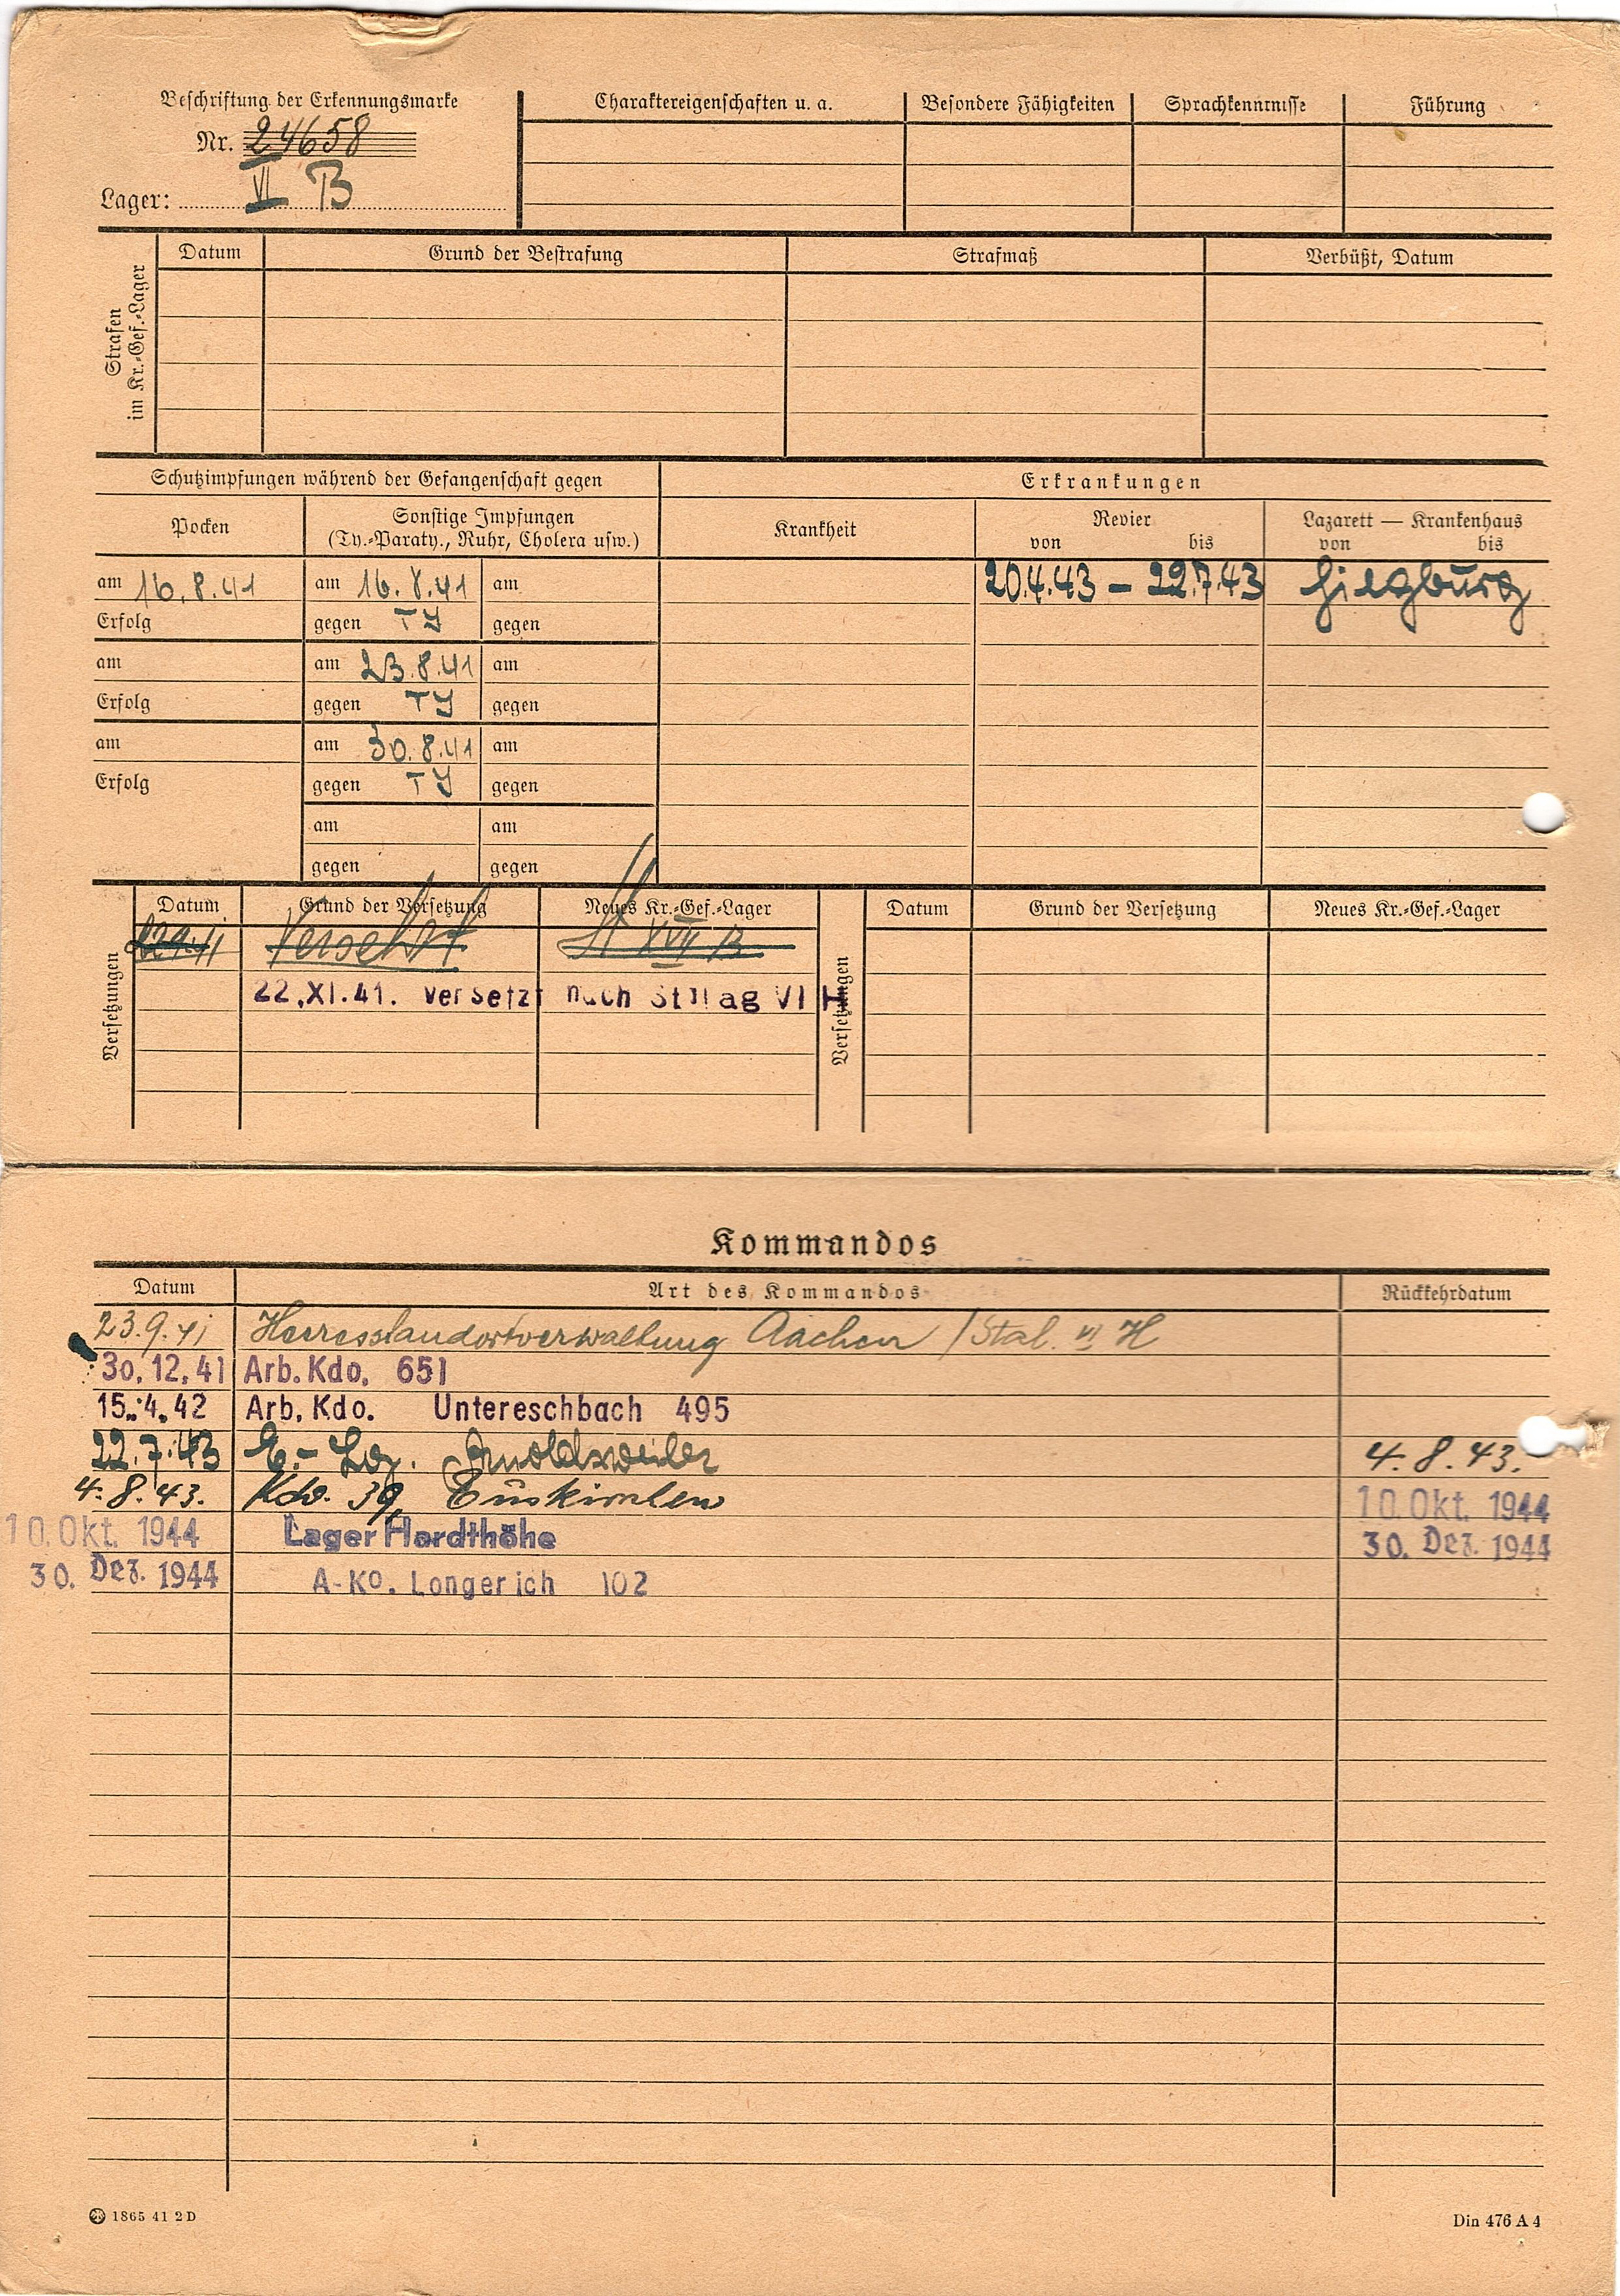 Beschriftung der Erkennungsmarke
Nr. 24658
Lager: VI B
Charaktereigenschaften u. a. Besondere Fähigkeiten Sprachkenntnisse Führung
Strafen
im Kr.-Gef.-Lager
Datum Grund der Bestrafung Strafmaß Verbüßt, Datum
Schutzimpfungen während der Gefangenschaft gegen
Erkrankungen
Pocken
Sonstige Impfungen
(Ty.-Paraty., Ruhr, Cholera usw.)
Krankheit
Revier
von bis
Lazarett — Krankenhaus
von bis
am 16.8.41 am 16.8.41 am 20.4.43 – 22.7.43 Siegburg
Erfolg gegen TY gegen
am am 23.8.41 am
Erfolg gegen TY gegen
am am 30.8.41 am
Erfolg gegen TY gegen
am am
gegen gegen
Versetzungen
Datum Grund der Versetzung Neues Kr.-Gef.-Lager
Versetzt St XVII B
22.XI.41. versetzt nach Stalag VI H
Versetzungen
Datum Grund der Versetzung Neues Kr.-Gef.-Lager
Kommandos
Datum Art des Kommandos Rückkehrdatum
23.9.41 Heeresstandortverwaltung Aachen / Stal. VI H
30.12.41 Arb. Kdo. 651
15.4.42 Arb. Kdo. Untereschbach 495
22.7.43 E.-Lg. Arnoldsweiler 4.8.43.
4.8.43. Kdo. 39, Euskirchen 10. Okt. 1944
10. Okt. 1944 Lager Hardthöhe 30. Dez. 1944
30. Dez. 1944 A-Ko. Longerich 102
1865 41 2 D
Din 476 A 4